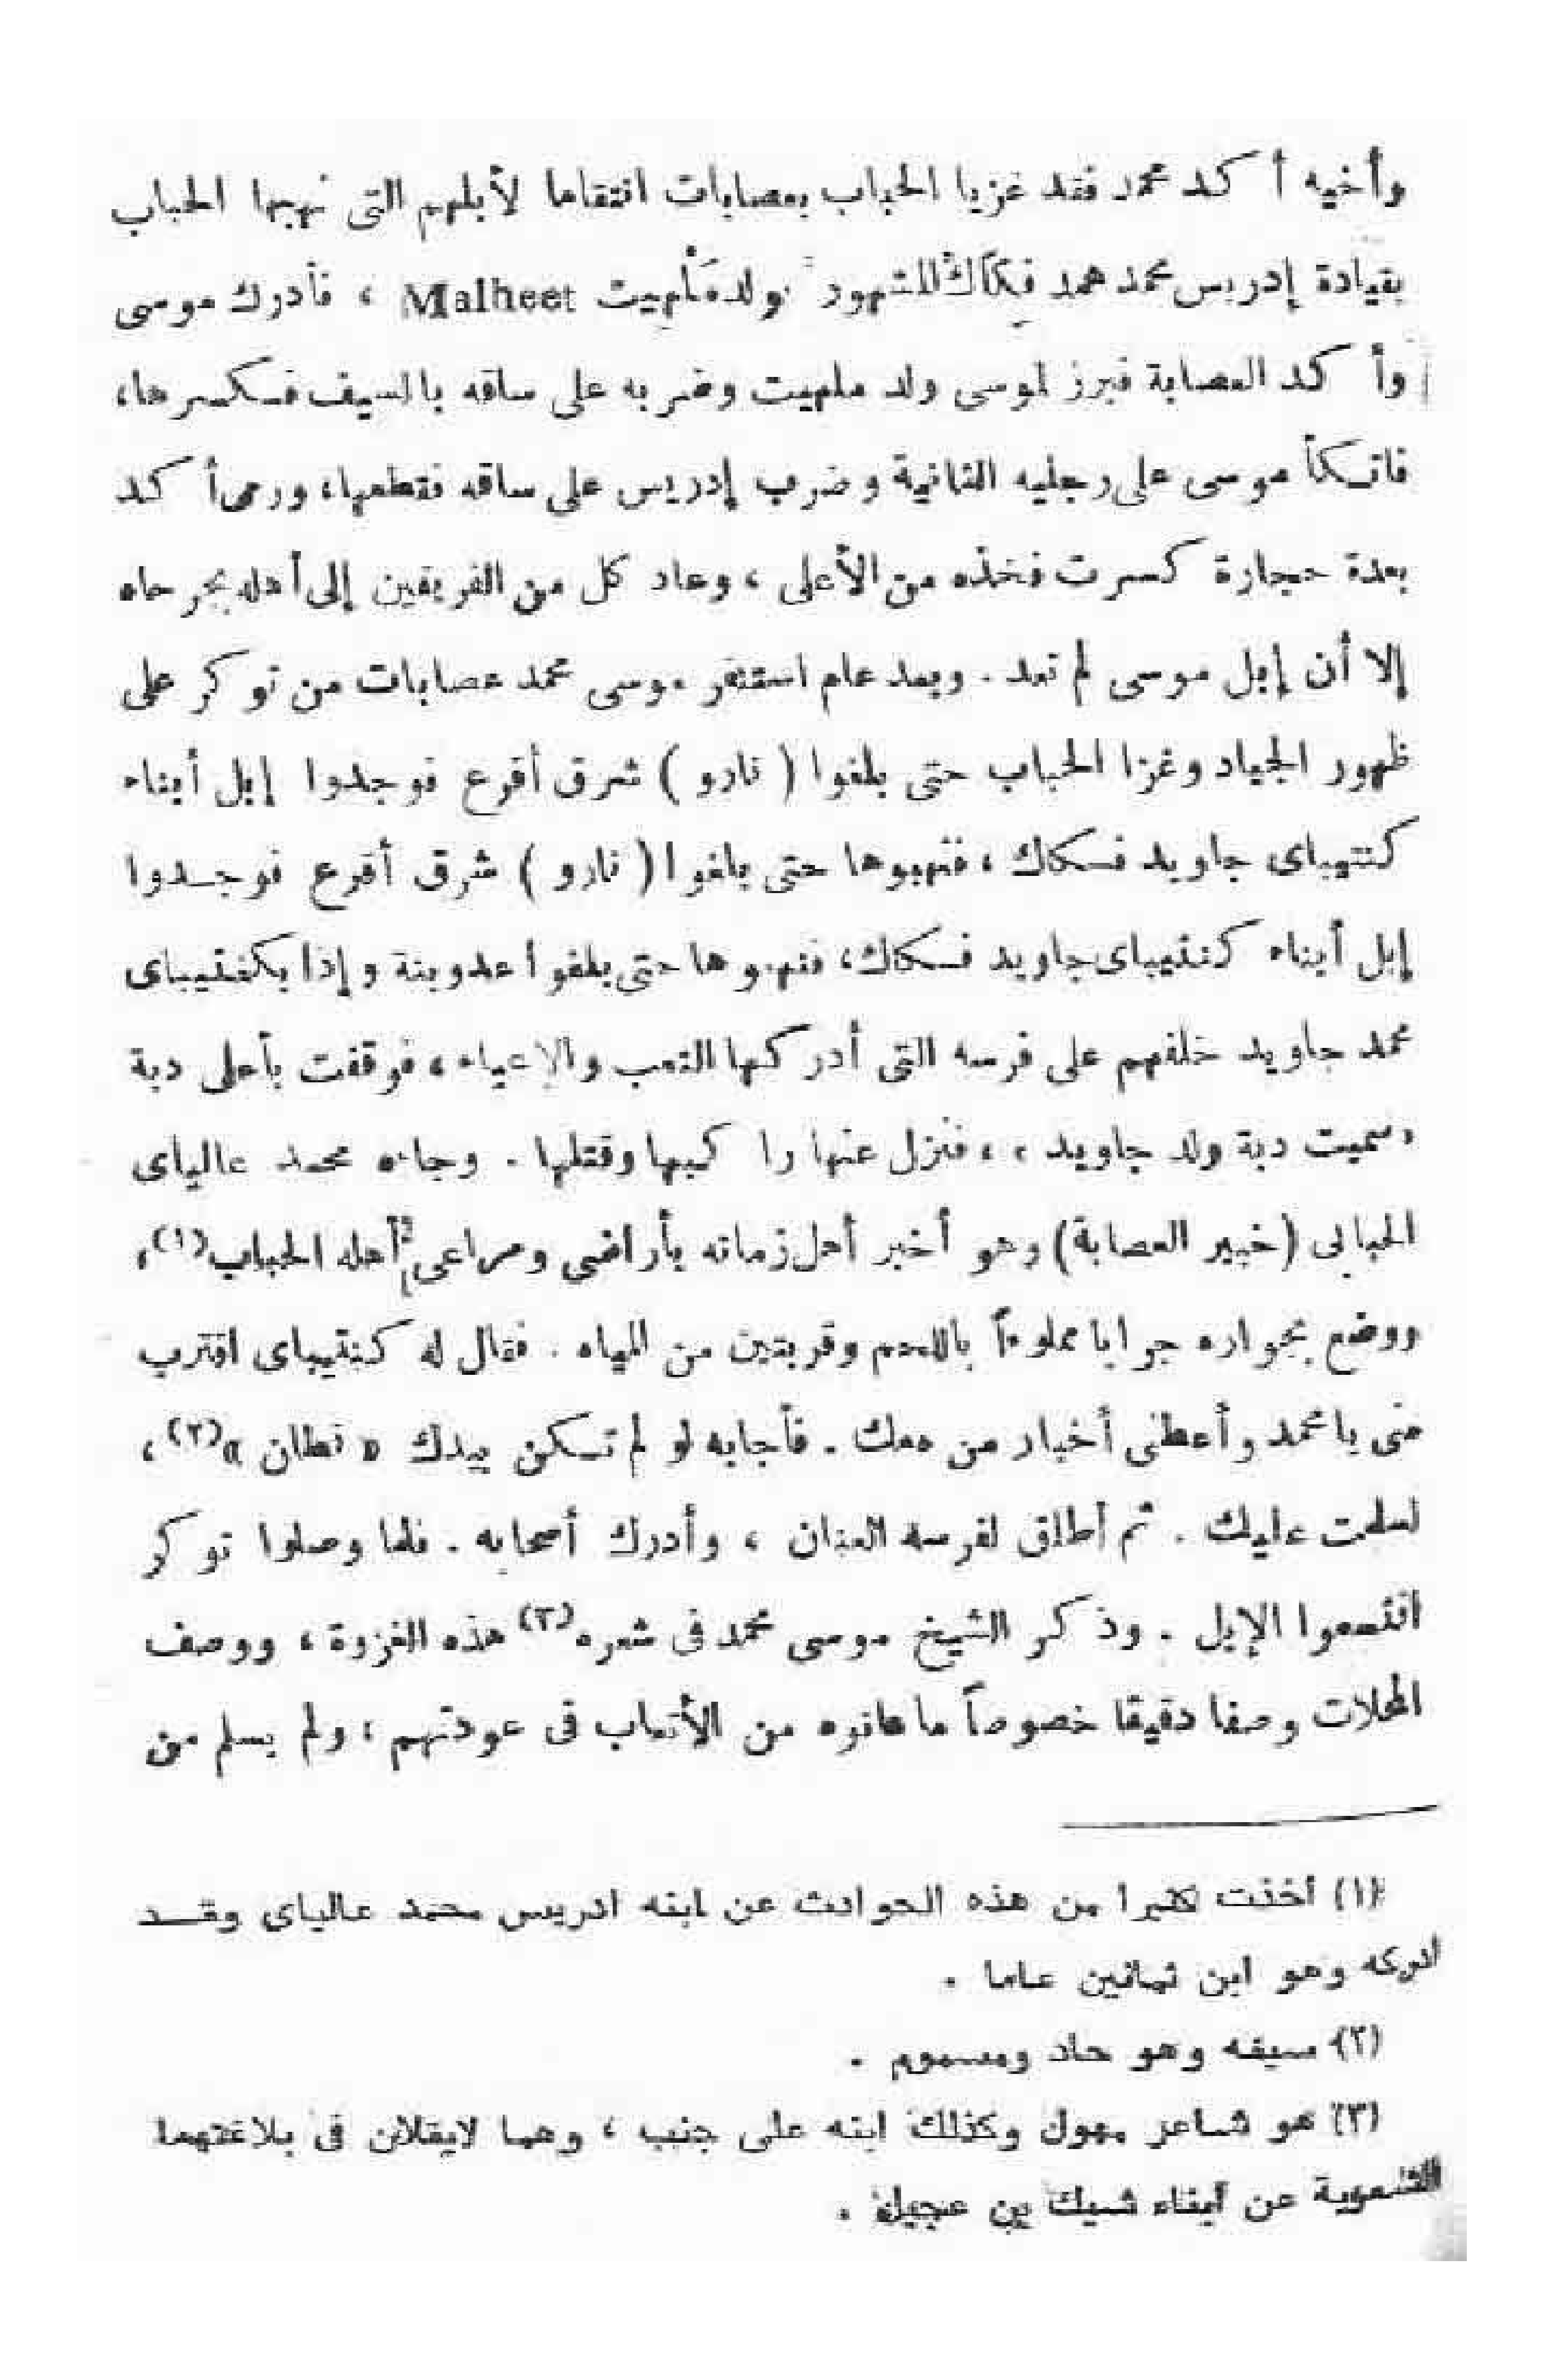 وأخيه أكد محمد فقد غزيا الحباب بعصابات انتقاما لأبلهم التى نهبها الحباب
بقيادة إدريس محمد همد فكاك المشهور بولد مَلْهيت Malheet ، فأدرك موسى
وأكد العصابة فبرز لموسى ولد ملهيت وضربه على ساقه بالسيف فكسرها،
فاتكأ موسى على رجليه الثانية وضرب إدريس على ساقه فقطعها، ورمى أكد
بعدة حجارة كسرت فخذه من الأعلى ، وعاد كل من الفريقين إلى أهله بجرحاه
إلا أن إبل موسى لم تعد . وبعد عام استنفر موسى محمد عصابات من توكر على
ظهور الجياد وغزا الحباب حتى بلغوا ( نارو ) شرق أقرع فوجدوا إبل أبناء
كنتيباى جاويد فكاك ، فنهبوها حتى بلغوا ( نارو ) شرق أقرع فوجدوا
إبل أبناء كنتيباى جاويد فكاك، فنهبوها حتى بلغوا عدوبنة وإذا بكنتيباى
محمد جاويد خلفهم على فرسه التى أدركها التعب والإعياء ، فوقفت بأعلى دبة
«سميت دبة ولد جاويد » ، فنزل عنها راكبها وقتلها . وجاءه محمد عالياى
الحبابى (خبير العصابة) وهو أخبر أهل زمانه بأراضى ومراعى أهله الحباب(١)،
ووضع بجواره جرابا مملوءاً باللحم وقربتين من المياه . فقال له كنتيباى اقترب
منى يا محمد وأعطنى أخبار من معك . فأجابه لو لم تكن بيدك « نطان »(٢)،
لسلمت عليك . ثم أطلق لفرسه العنان ، وأدرك أصحابه . فلما وصلوا توكر
اقتسموا الإبل . وذكر الشيخ موسى محمد فى شعره(٣) هذه الغزوة ، ووصف
المحلات وصفا دقيقا خصوصاً ما عانوه من الأتعاب فى عودتهم ، ولم يسلم من
(١) أخذت كثيرا من هذه الحوادث عن ابنه ادريس محمد عالياى وقد
أدركه وهو ابن ثمانين عاما .
(٢) سيفه وهو حاد ومسموم .
(٣) هو شاعر مهول وكذلك ابنه على جنب ، وهما لايقلان فى بلاغتهما
الشعرية عن أبناء شيك بن عجيل .